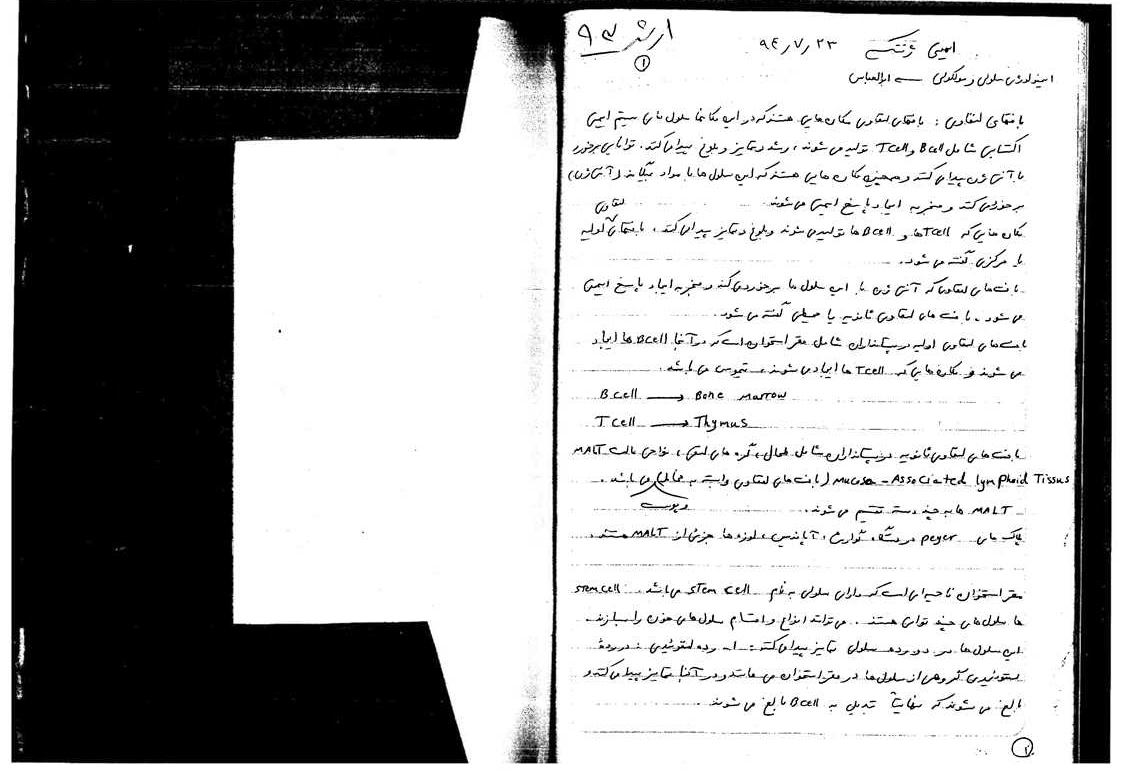 ارشد ۹۴
۱
ایمنی ژنتیک ۹۴,۷,۲۳
ایمنولوژی سلولی و مولکولی ← ابوالعباس
بافتهای لنفاوی : بافتهای لنفاوی مکان هایی هستند که در این مکانها سلول های سیستم ایمنی
اکتسابی شامل Bcell و Tcell تولید می شوند، رشد و تمایز و بلوغ پیدا می کنند. توانایی برخورد
با آنتی ژن پیدا می کنند و همچنین مکان هایی هستند که این سلول ها با مواد بیگانه (آنتی ژن)
برخورد می کنند و منجر به ایجاد پاسخ ایمنی می شوند.
مکان هایی که Tcell ها و Bcell ها تولید می شوند و بلوغ و تمایز پیدا می کنند، بافتهای لنفاوی اولیه
یا مرکزی گفته می شود.
بافت های لنفاوی که آنتی ژن با این سلول ها برخورد می کند و منجر به ایجاد پاسخ ایمنی
می شود. بافت های لنفاوی ثانویه یا محیطی گفته می شود.
بافت های لنفاوی اولیه در پستانداران شامل مغز استخوان است که در آنجا Bcell ها ایجاد
می شوند و مکان هایی که Tcell ها ایجاد می شوند، تیموس می باشد.
B cell → Bone marrow
T cell → Thymus
بافت های لنفاوی ثانویه در پستانداران شامل طحال، گره های لنفی، نواحی MALT
Mucosa - Associated lymphoid Tissus (بافت های لنفاوی وابسته به مخاط) می باشد.
MALT ها به چند دسته تقسیم می شوند.
پلاک های peyer در دستگاه گوارش، آپاندیس، لوزه ها جزئی از MALT هستند.
مغز استخوان ناحیه ای است که دارای سلولی به نام stem cell می باشد. stem cell
ها سلول های چند توانی هستند. می توانند انواع و اقسام سلول های خون را بسازند.
این سلول ها در دو رده سلولی تمایز پیدا می کنند: ۱- رده لنفوئیدی : در رده
لنفوئیدی گروهی از سلول ها در مغز استخوان می مانند و در آنجا تمایز پیدا می کنند و
بالغ می شوند که نهایتاً تبدیل به Bcell بالغ می شوند.
۱